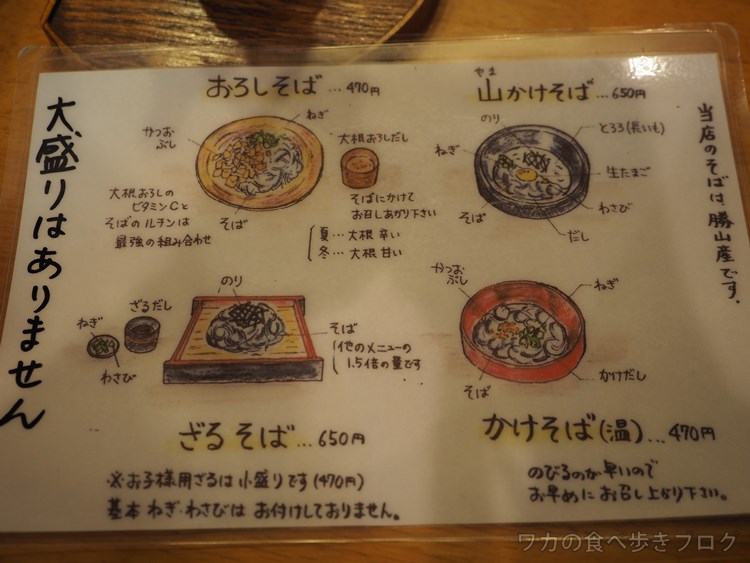 大盛りはありません
おろしそば…470円
ねぎ
かつお
ぶし
大根おろしだし
大根おろしの
ビタミンCと
そばのルチンは
最強の組み合わせ
そば
そばにかけて
お召しあがり下さい
夏…大根辛い
冬…大根甘い
やま
山かけそば…650円
のり
とろろ(長いも)
ねぎ
生たまご
わさび
そば
だし
当店のそばは、勝山産です。
のり
ざるだし
ねぎ
わさび
そば
他のメニューの
1.5倍の量です
ざるそば…650円
※お子様用ざるは小盛りです(470円)
基本ねぎ・わさびはお付けしておりません。
かつお
ぶし
ねぎ
そば
かけだし
かけそば(温)…470円
のびるのが早いので
お早めにお召し上がり下さい。
ワカの食べ歩きブログ